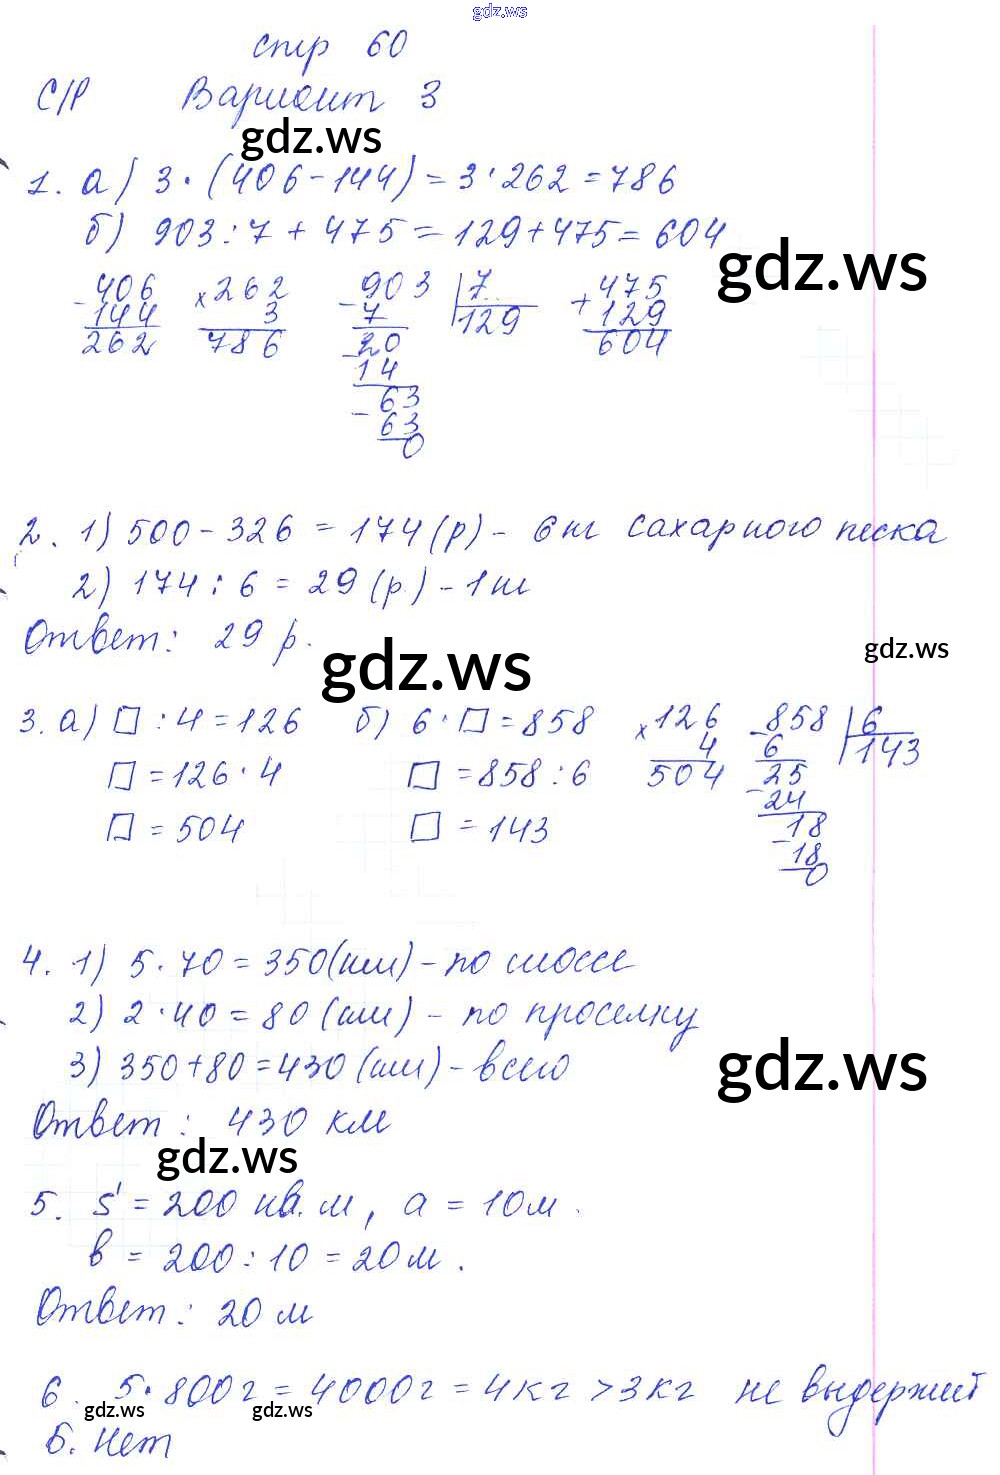 gdz.ws
стр 60
С/Р Вариант 3
gdz.ws
1. а) 3 · (406 - 144) = 3 · 262 = 786
б) 903 : 7 + 475 = 129 + 475 = 604
gdz.ws
- 406 × 262 - 903 | 7 + 475
144 3 7 129 129
262 786 - 20 604
14
- 63
63
0
2. 1) 500 - 326 = 174 (р) - 6 кг сахарного песка
2) 174 : 6 = 29 (р.) - 1 кг
Ответ: 29 р.
gdz.ws gdz.ws
3. а) □ : 4 = 126 б) 6 · □ = 858 × 126 - 858 | 6
4 6 143
□ = 126 · 4 □ = 858 : 6 504 - 25
24
□ = 504 □ = 143 - 18
18
0
4. 1) 5 · 70 = 350 (км) - по шоссе
2) 2 · 40 = 80 (км) - по проселку
3) 350 + 80 = 430 (км) - всего
gdz.ws
Ответ: 430 км
gdz.ws
5. S = 200 кв. м, а = 10 м.
в = 200 : 10 = 20 м.
Ответ: 20 м
6. 5 · 800 г = 4000 г = 4 кг > 3 кг не выдержит
gdz.ws gdz.ws
Б. Нет